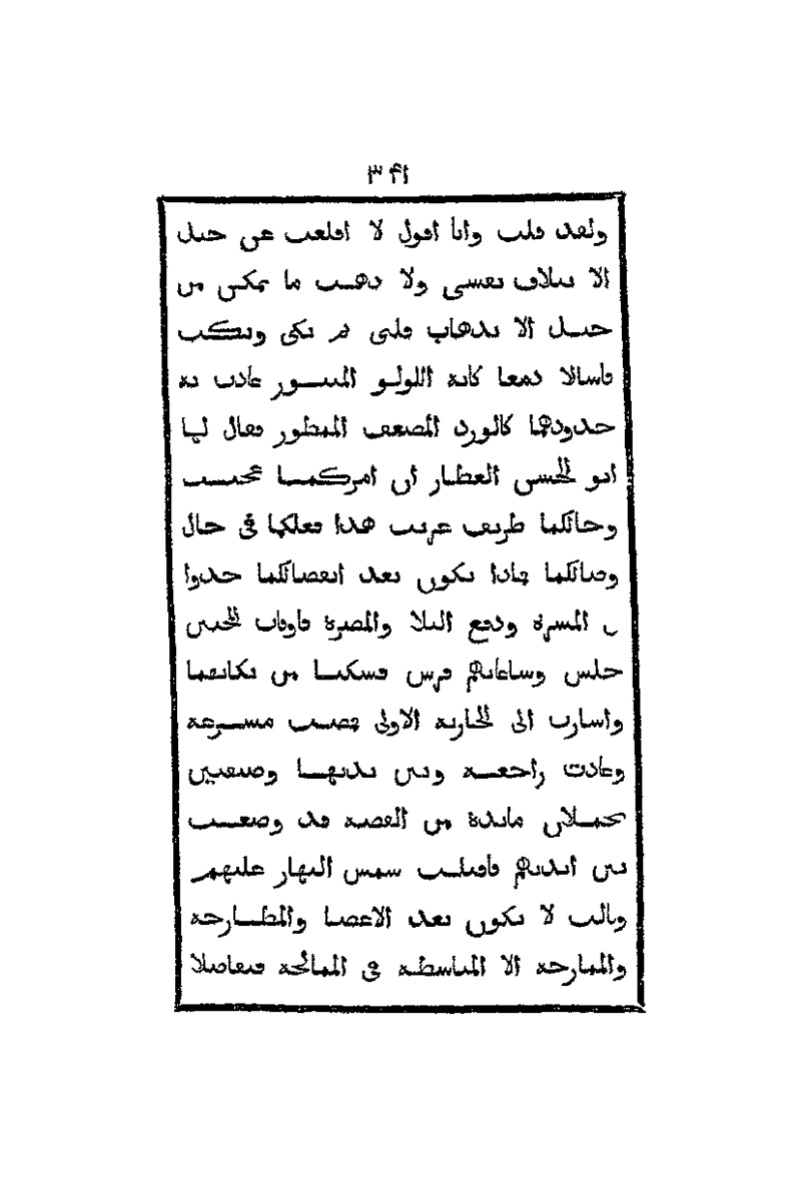 ٣۴١
ولقد قلت وانا اقول لا اقلعت عن حبك
الا بتلاف نفسى ولا ذهب ما تمكن من
حبك الا بذهاب قلبى ثم بكى وبكت
فاسالا دمعا كانه اللولو المنثور عادت به
خدودهما كالورد المضعف الممطور فقال لهما
ابو الحسن العطار ان امركما عجيب
وحالكما طريف غريب هذا فعلكما فى حال
وصالكما فماذا يكون بعد انفصالكما خذوا
فى المسرة ودفع البلا والمضرة فاوقات
خلس وساعاتهم فرس فسكتا من بكائهما
واشارت الى الجارية الاولى فمضت مسرعة
وعادت راجعة وبين يديها وصيفتين
يحملان مائدة من الفضة قد وضعت
بين ايديهم فاقبلت شمس النهار عليهم
وقالت لا يكون بعد والمطارحة
والممازحة الا المباسطة فى الممالحة